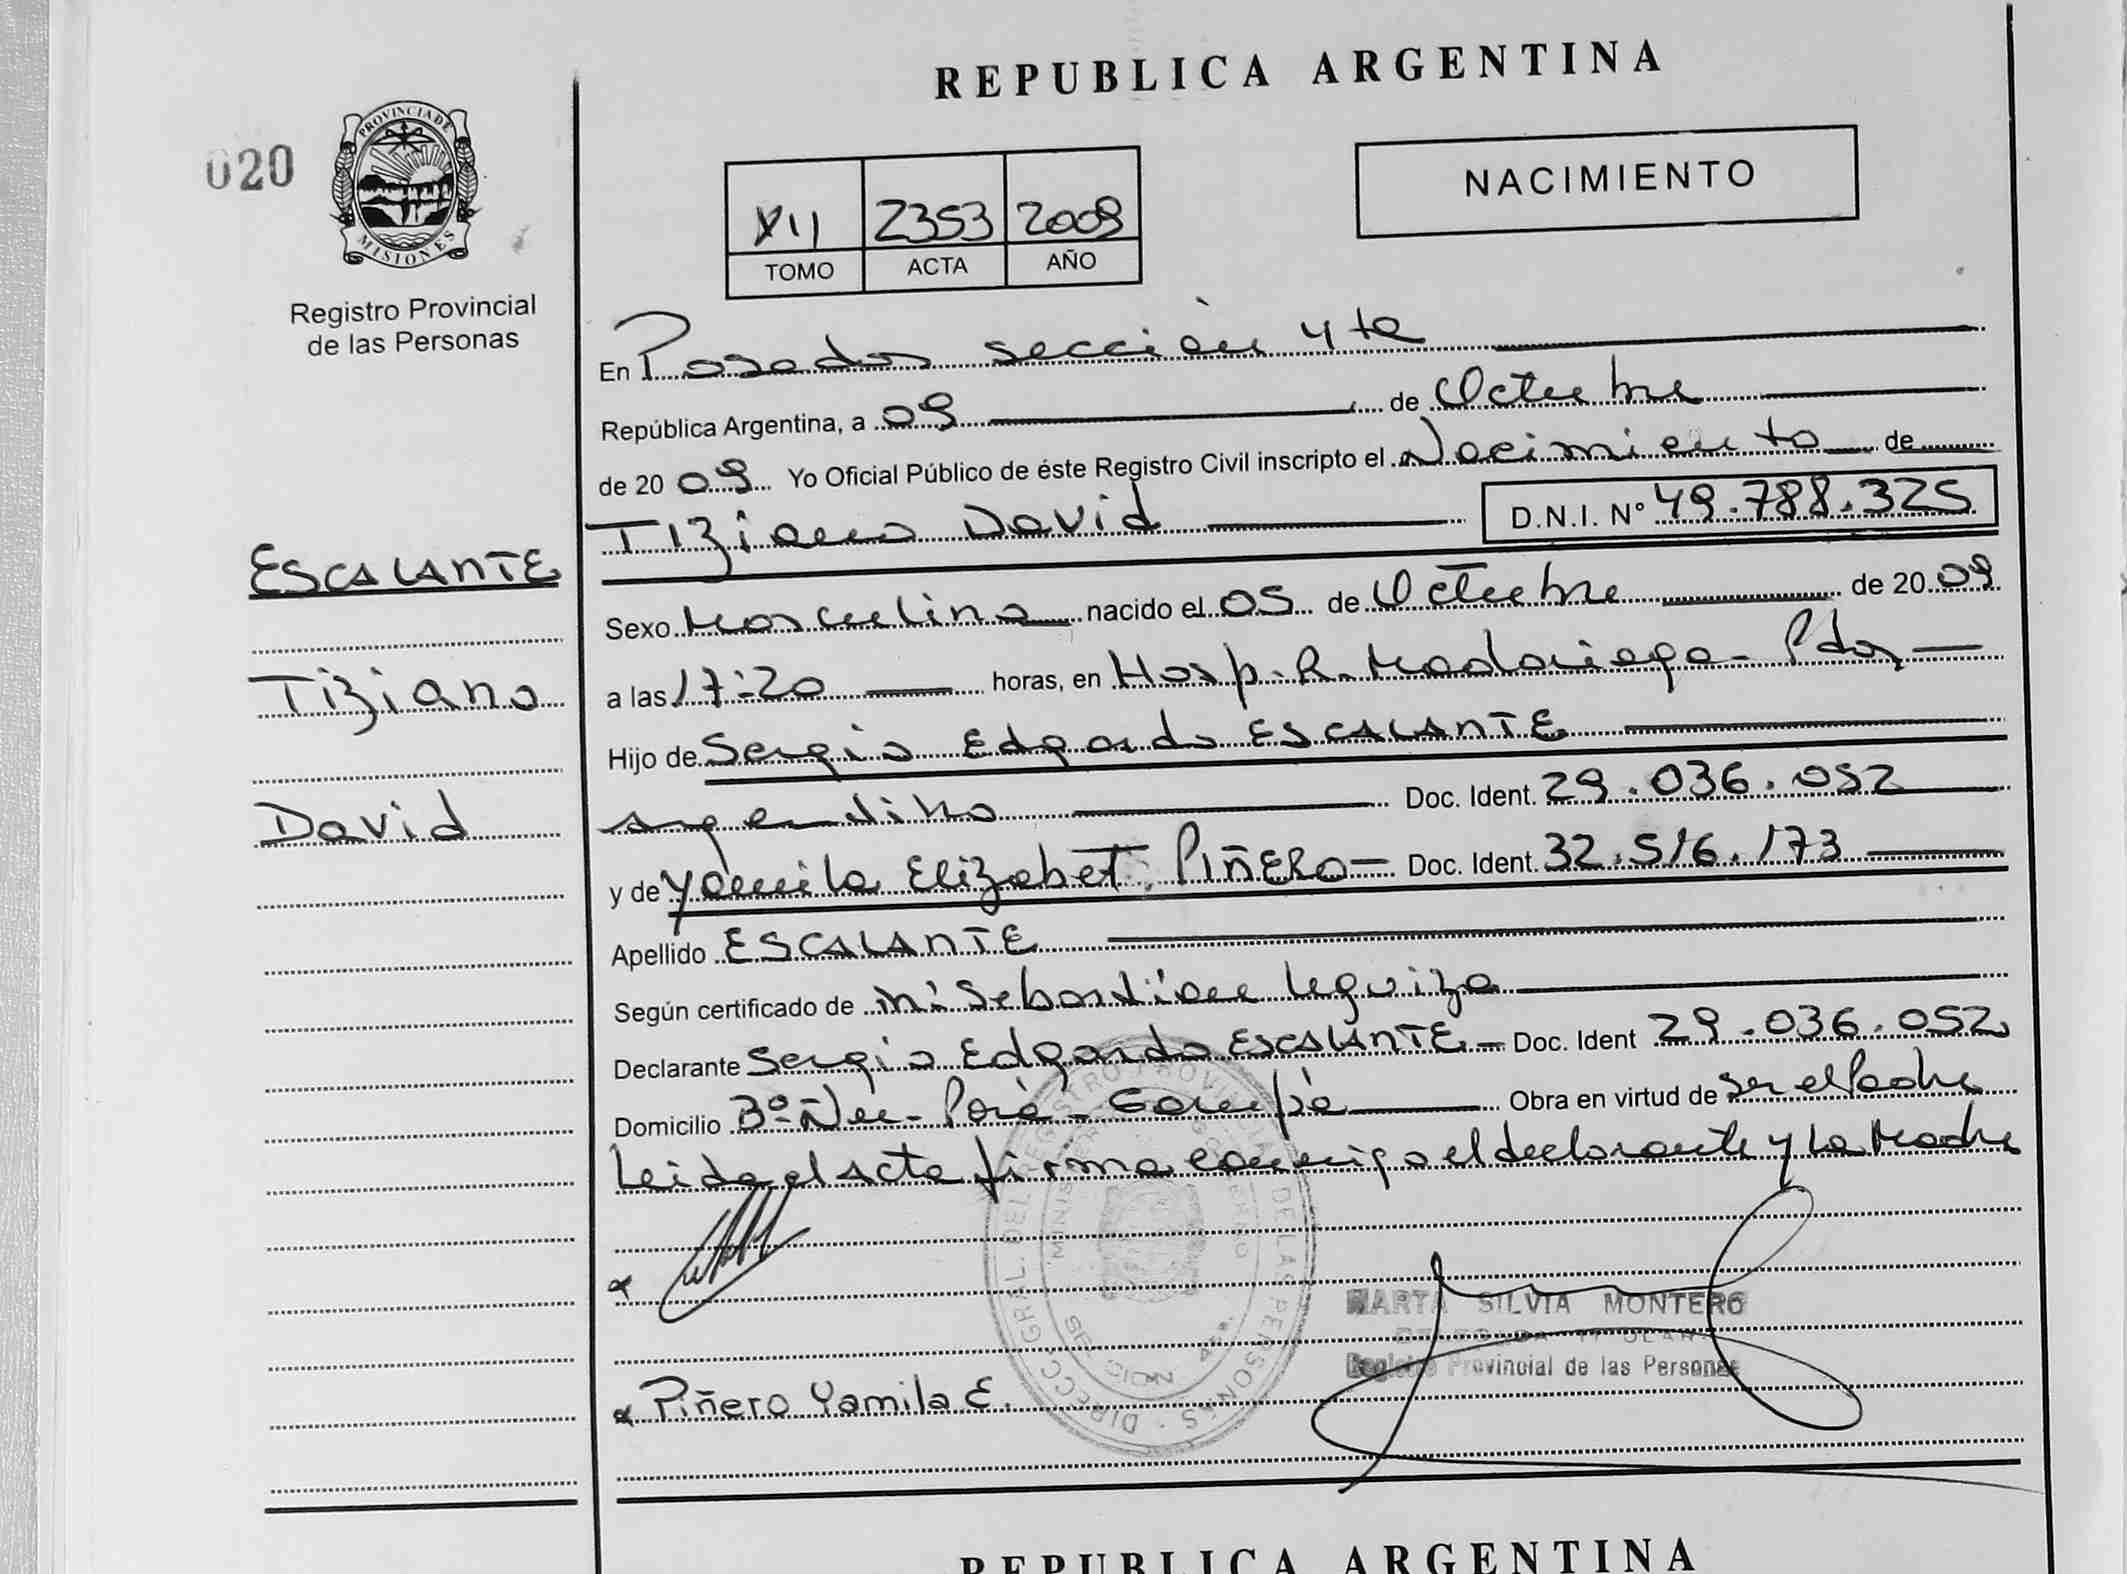 REPUBLICA ARGENTINA
020
PROVINCIA DE
MISIONES
Registro Provincial
de las Personas
NACIMIENTO
XII 2353 2009
TOMO ACTA AÑO
En Posadas sección 4ta
República Argentina, a 09 de Octubre
de 2009 Yo Oficial Público de éste Registro Civil inscripto el Nacimiento de
Tiziano David D.N.I. N° 49.788.325
ESCALANTE
Tiziano
David
Sexo Masculino nacido el 05 de Octubre de 2009
a las 17:20 horas, en Hosp. R. Madariaga - Pdas
Hijo de Sergio Edgardo ESCALANTE
argentino Doc. Ident. 29.036.052
y de Yamila Elizabet PIÑERO Doc. Ident. 32.516.173
Apellido ESCALANTE
Según certificado de Sebastiana Leguiza
Declarante Sergio Edgardo ESCALANTE - Doc. Ident 29.036.052
Domicilio Bº Ñu - Porá - Garupá Obra en virtud de ser el Padre
Leida el acta firma conmigo el declarante y la Madre
MARTA SILVIA MONTERO
Registro Provincial de las Personas
Piñero Yamila E.
DIRECC. GRAL. DEL REGISTRO PROVINCIAL DE LAS PERSONAS
REPUBLICA ARGENTINA